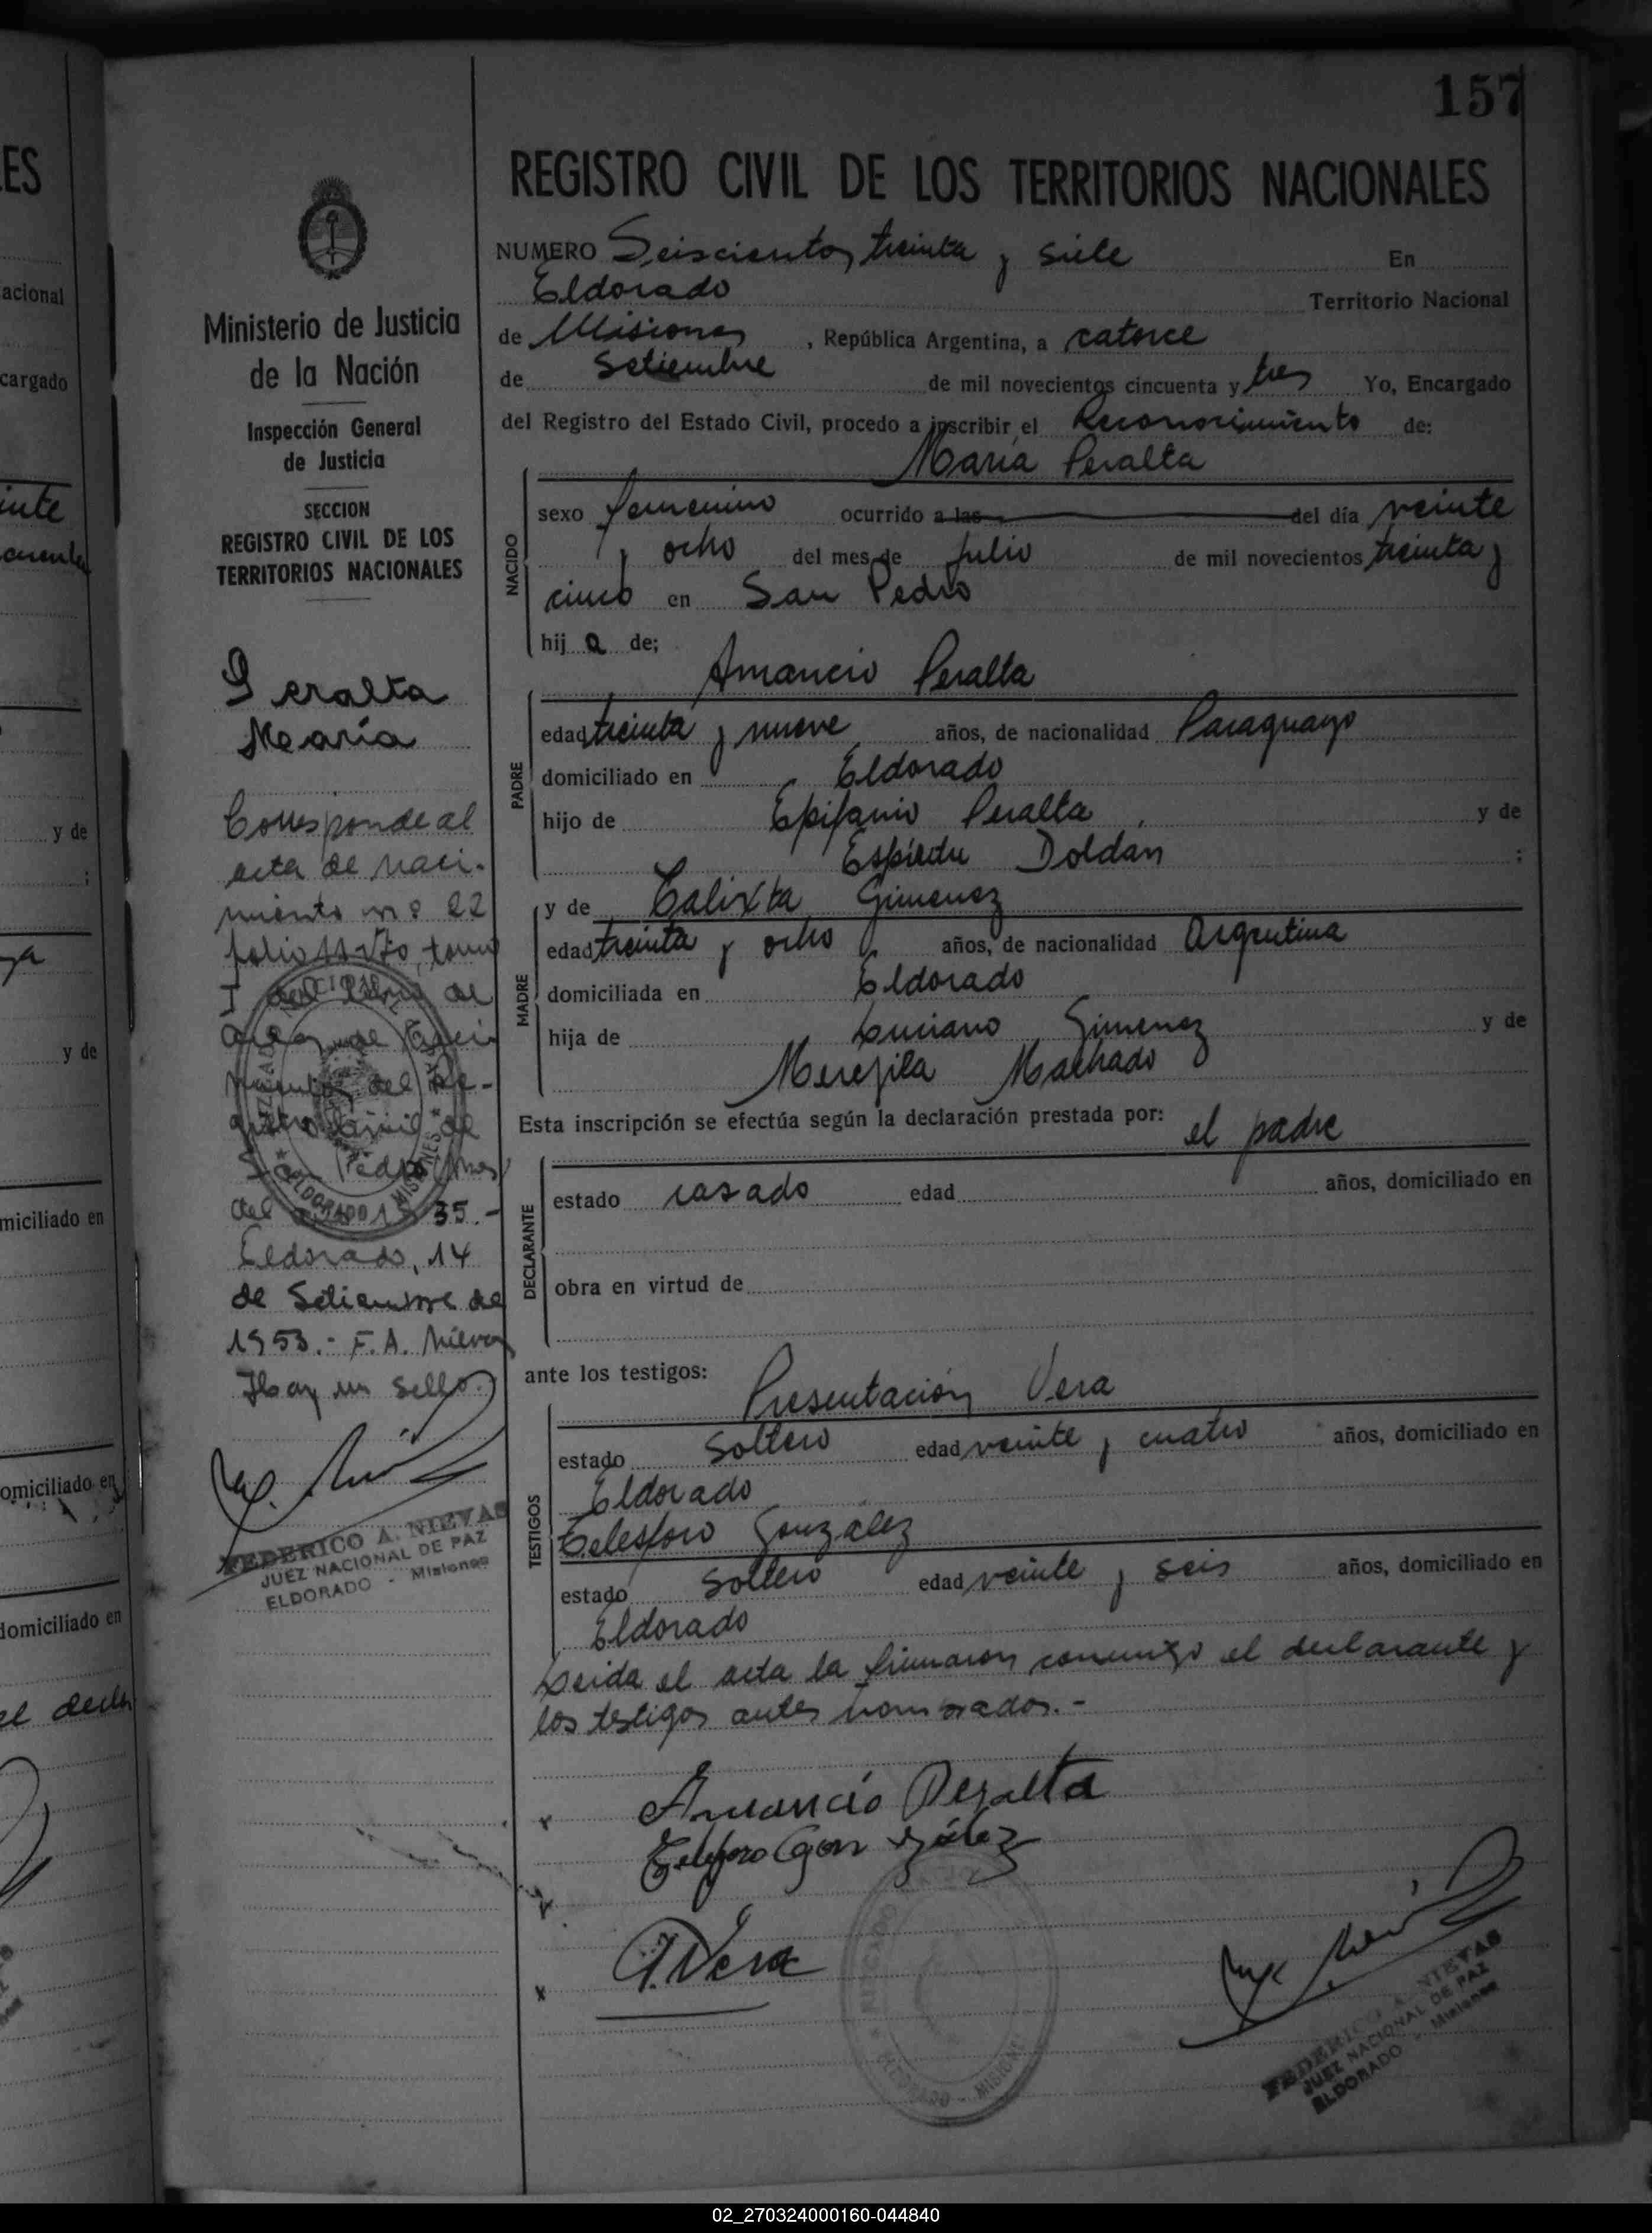 157
REGISTRO CIVIL DE LOS TERRITORIOS NACIONALES
NUMERO Seiscientos treinta y siete En
Eldorado Territorio Nacional
de Misiones, República Argentina, a catorce
de setiembre de mil novecientos cincuenta y tres Yo, Encargado
del Registro del Estado Civil, procedo a inscribir el Reconocimiento de:
María Peralta
NACIDO
sexo femenino ocurrido a las del día veinte
y ocho del mes de Julio de mil novecientos treinta y
cinco en San Pedro
hija de;
Amancio Peralta
PADRE
edad treinta y nueve años, de nacionalidad Paraguayo
domiciliado en Eldorado
hijo de Epifanio Peralta y de
Doldan ;
y de Calixta Gimenez
MADRE
edad treinta y ocho años, de nacionalidad Argentina
domiciliada en Eldorado
hija de Luciano Gimenez y de
Machado
Esta inscripción se efectúa según la declaración prestada por: el padre
DECLARANTE
estado casado edad años, domiciliado en
obra en virtud de
ante los testigos:
Presentación Vera
TESTIGOS
estado soltero edad veinte y cuatro años, domiciliado en
Eldorado
Telesforo Gonzalez
estado soltero edad veinte y seis años, domiciliado en
Eldorado
Leida el acta la firmaron conmigo el declarante y
los testigos antes nombrados.-
Amancio Peralta
Telesforo González
P. Vera
FEDERICO A. NIEVAS
JUEZ NACIONAL DE PAZ
ELDORADO - Misiones
Ministerio de Justicia
de la Nación
Inspección General
de Justicia
SECCION
REGISTRO CIVIL DE LOS
TERRITORIOS NACIONALES
Peralta
María
Corresponde al
acta de naci-
miento nº 22
folio 11 vto, tomo
I del libro de
del Re-
gistro Civil de
San Pedro
del 1935.-
Eldorado, 14
de Setiembre de
1953.- F. A. Nievas
Hay un sello.
FEDERICO A. NIEVAS
JUEZ NACIONAL DE PAZ
ELDORADO - Misiones
ELDORADO - MISIONES
ES
acional
cargado
y de
;
y de
miciliado en
omiciliado en
domiciliado en
02_270324000160-044840